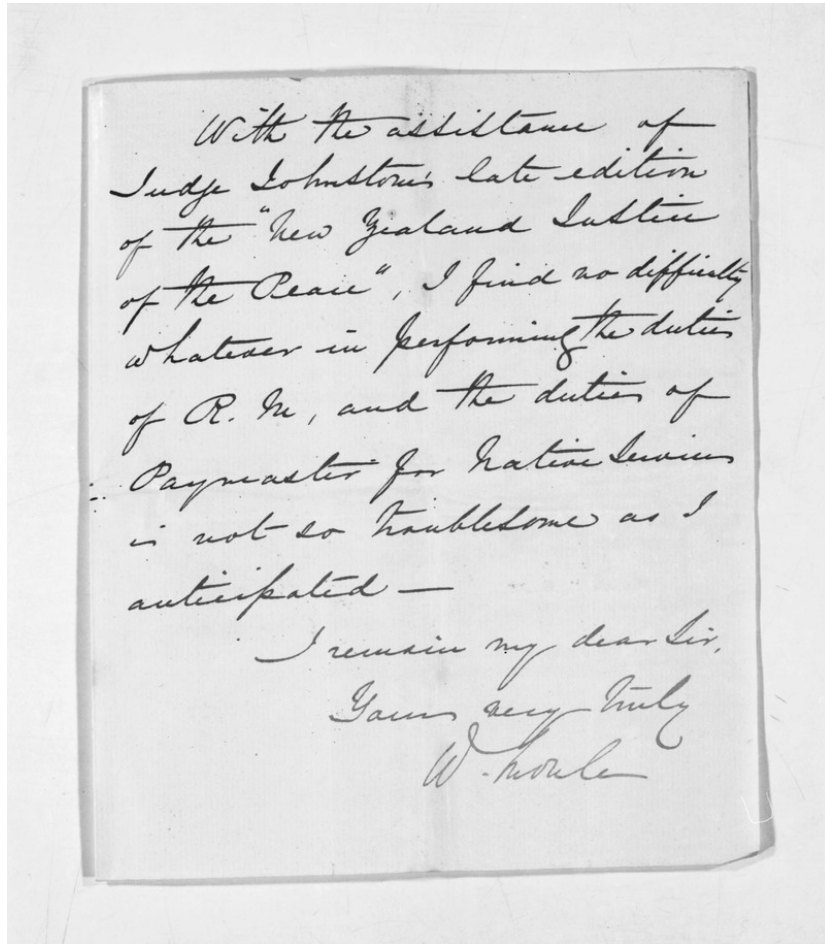 With the assistance of
Judge Johnston's late edition
of the "New Zealand Justice
of the Peace", I find no difficulty
whatever in performing the duties
of R. M, and the duties of
Paymaster for Native Services
is not so troublesome as I
anticipated —
I remain my dear Sir,
Yours very truly
W. Moule